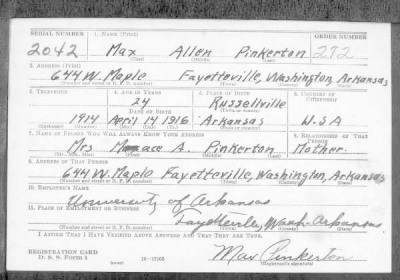 SERIAL NUMBER 1. NAME (Print) ORDER NUMBER
2042 Max Allen Pinkerton 272
(First) (Middle) (Last)
2. ADDRESS (Print)
644 W. Maple Fayetteville, Washington, Arkansas
(Number and street or R. F. D. number) (Town) (County) (State)
3. TELEPHONE 4. AGE IN YEARS 5. PLACE OF BIRTH 6. COUNTRY OF CITIZENSHIP
24 Russellville
DATE OF BIRTH
1914 April 14 1916 Arkansas U.S.A
7. NAME OF PERSON WHO WILL ALWAYS KNOW YOUR ADDRESS 8. RELATIONSHIP OF THAT PERSON
Mrs A. Pinkerton Mother.
9. ADDRESS OF THAT PERSON
644 W. Maple Fayetteville, Washington, Arkansas
(Number and street or R. F. D. number) (Town) (County) (State)
10. EMPLOYER'S NAME
University of Arkansas
11. PLACE OF EMPLOYMENT OR BUSINESS
Wash. Arkansas
I AFFIRM THAT I HAVE VERIFIED ABOVE ANSWERS AND THAT THEY ARE TRUE.
REGISTRATION CARD
D. S. S. Form 1 (over) 16-17105
Max Pinkerton